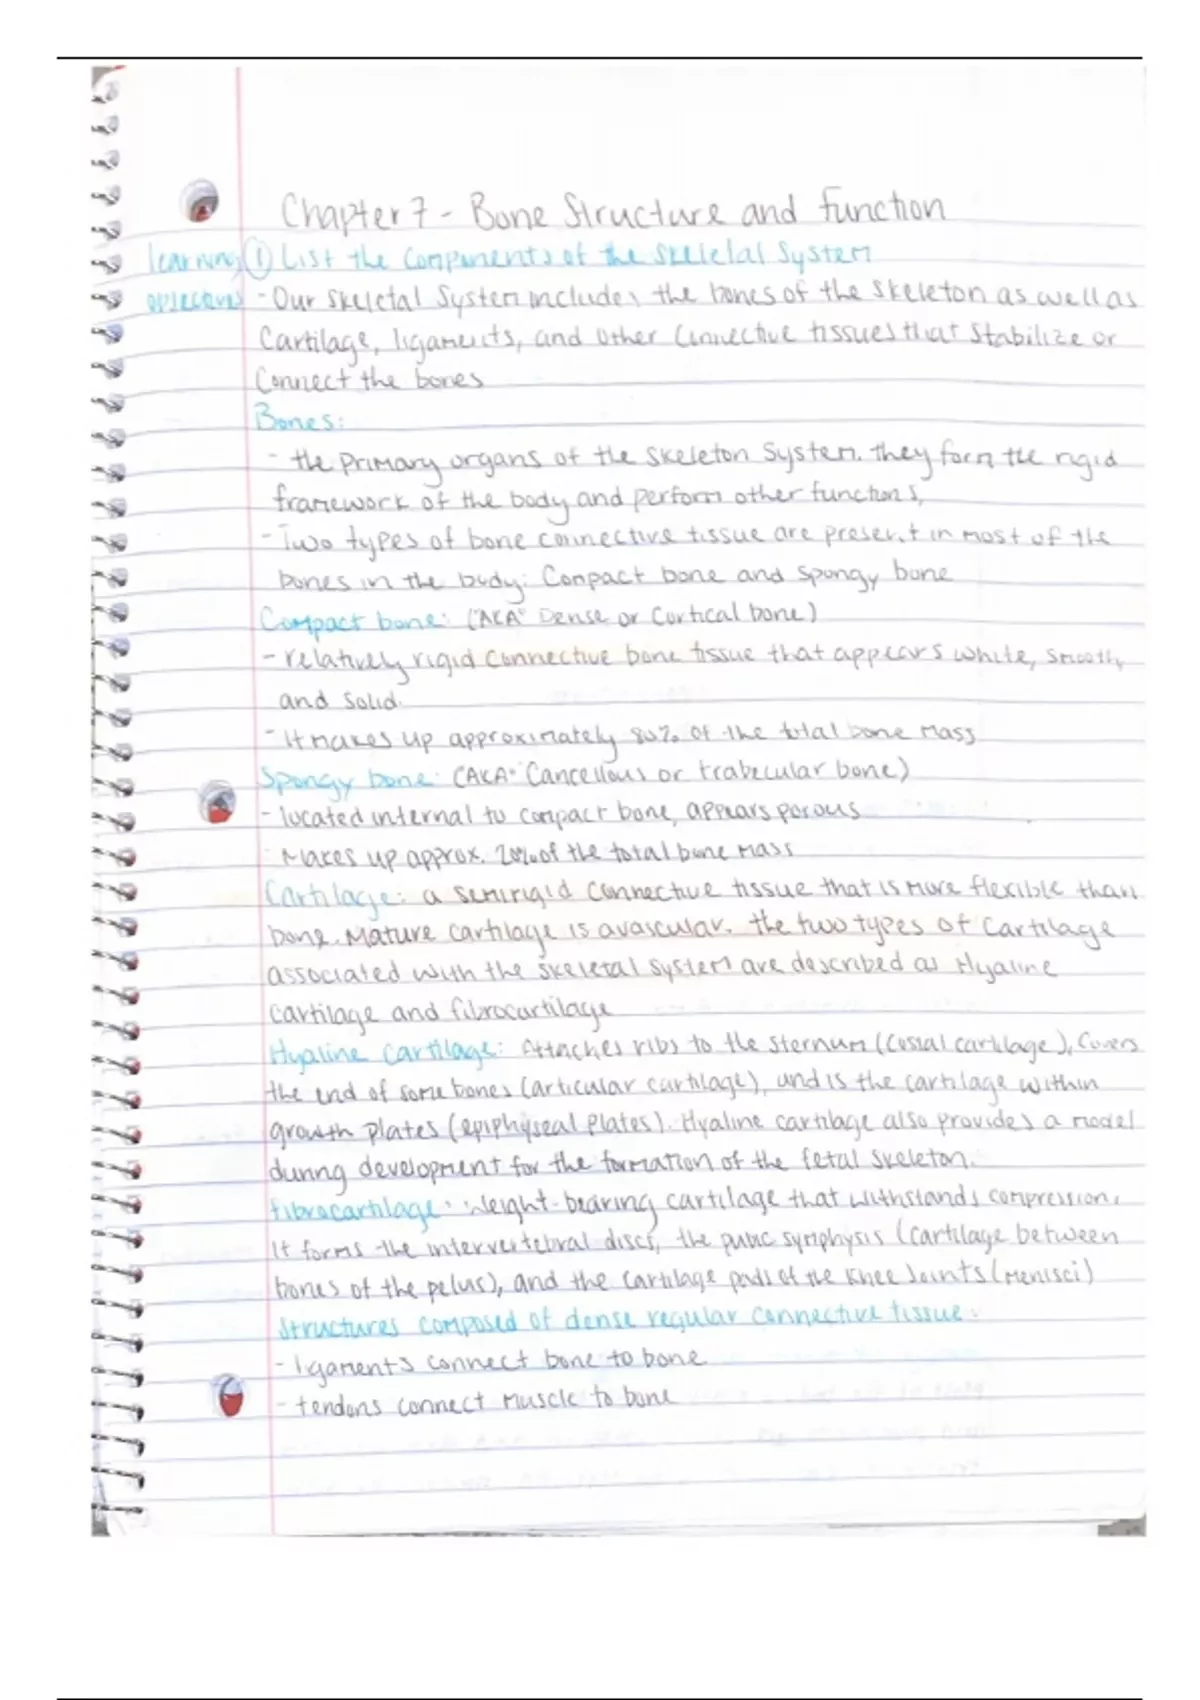 Chapter 7 - Bone Structure and function
learning ① List the components of the skeletal System
objectives - Our skeletal System includes the bones of the skeleton as well as
Cartilage, ligaments, and other Connective tissues that stabilize or
Connect the bones
Bones:
- the primary organs of the skeleton System. they form the rigid
framework of the body and perform other functions,
- Two types of bone connective tissue are present in most of the
bones in the body: Compact bone and spongy bone
Compact bone: ("AKA" Dense or Cortical bone)
- relatively rigid connective bone tissue that appears white, smooth,
and solid.
- It makes up approximately 80% of the total bone mass
Spongy bone: (AKA: Cancellous or trabecular bone)
- located internal to compact bone, appears porous
Makes up approx. 20% of the total bone mass
Cartilage: a semirigid connective tissue that is more flexible than
bone. Mature cartilage is avascular. the two types of Cartilage
associated with the skeletal system are described as Hyaline
cartilage and fibrocartilage
Hyaline Cartilage: Attaches ribs to the sternum (costal cartilage), Covers
the end of some bones (articular cartilage), and is the cartilage within
growth plates (epiphyseal plates). Hyaline cartilage also provides a model
during development for the formation of the fetal skeleton.
fibrocartilage: Weight-bearing cartilage that withstands compression.
It forms the intervertebral discs, the pubic symphysis (cartilage between
bones of the pelvis), and the cartilage pads of the knee Joints (menisci)
Structures composed of dense regular connective tissue:
- ligaments connect bone to bone
- tendons connect muscle to bone